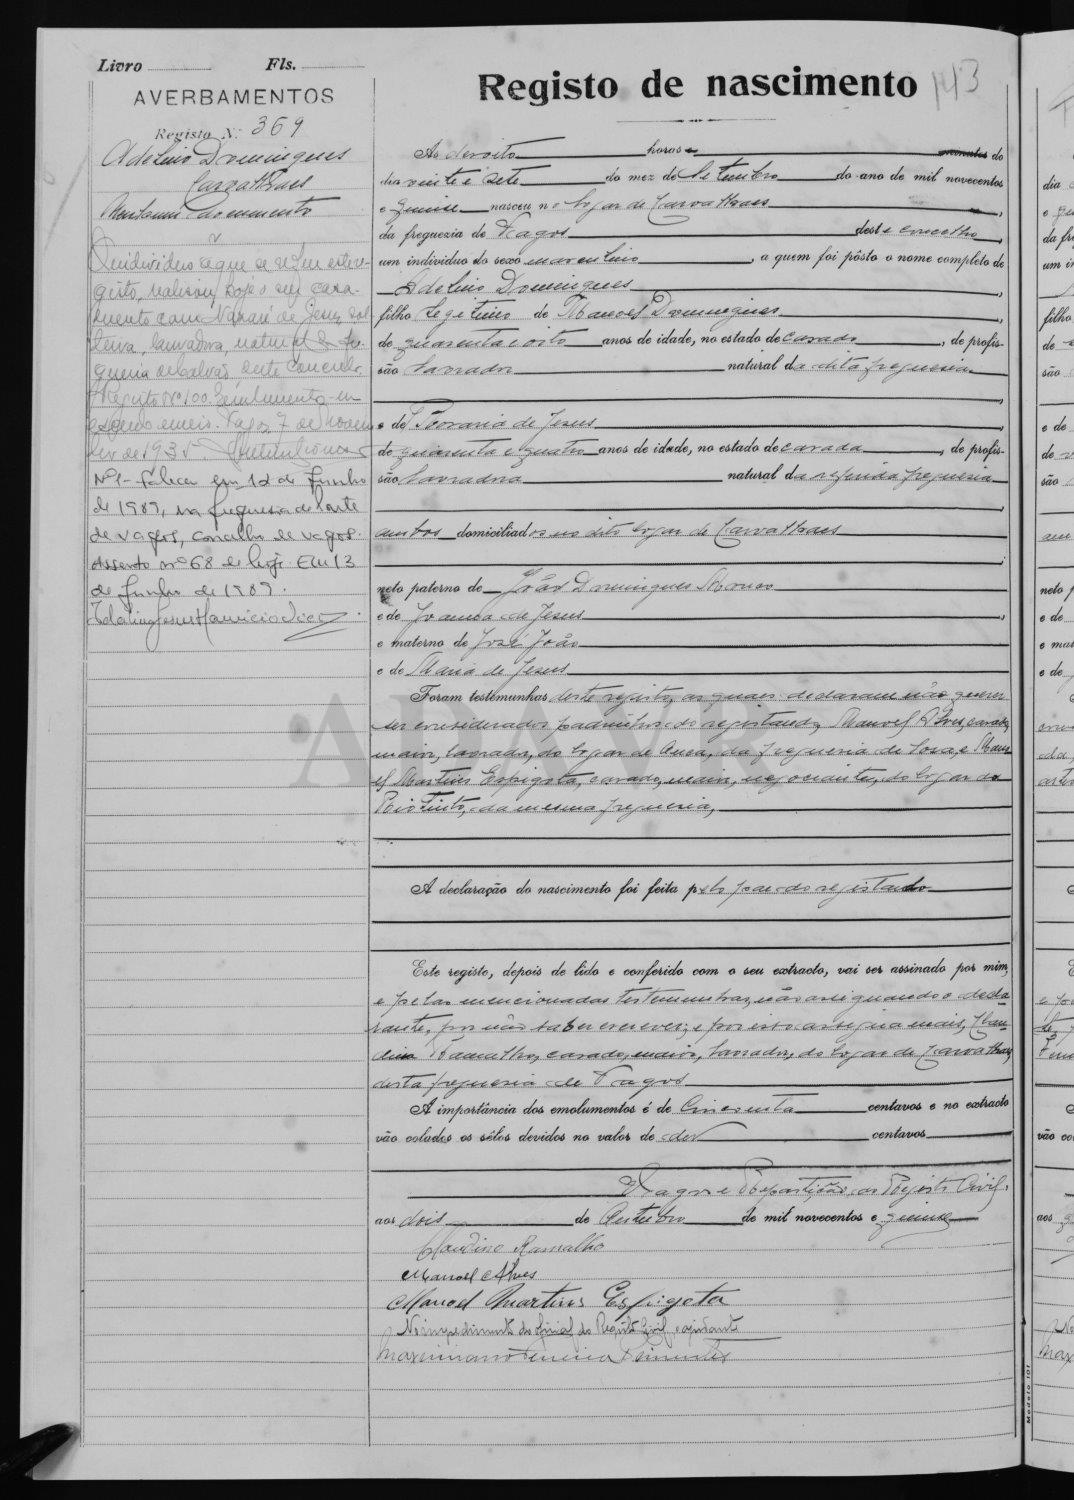 Livro Fls.
AVERBAMENTOS
Registo N.º 369
Adelino Domingues
Carvalhaes
casamento
O individuo a que se refere este re-
gisto, realisou hoje o seu casa-
mento com de Jesus, sol-
teira, lavradora, natural da fre-
guesia de Calvão, deste concelho.
Registo nº 100. Emolumento um
escudo. Vagos, 7 de Novem
bro de 1935.
Nº 1 - Faleceu em 12 de Junho
de 1989, na freguesia de Ponte
de Vagos, concelho de Vagos.
Assento nº 68 de hoje. Em 13
de Junho de 1989.
143
Registo de nascimento
Ás dezoito horas e minutos do
dia vinte e sete do mez de Setembro do ano de mil novecentos
e quinze nasceu no logar de Carvalhaes,
da freguezia de Vagos deste concelho,
um individuo do sexo masculino, a quem foi pôsto o nome completo de
Adelino Domingues,
filho legitimo de Manoel Domingues,
de quarenta e oito anos de idade, no estado de casado, de profis-
são lavrador natural da dita freguesia
e de Rosaria de Jesus,
de quarenta e quatro anos de idade, no estado de casada, de profis-
são lavradora natural da referida freguesia
ambos domiciliados no dito logar de Carvalhaes
neto paterno de João Domingues
e de Joanna de Jesus,
e materno de José João
e de Maria de Jesus
Foram testemunhas deste registo, as quaes declararam não querer
ser considerados padrinhos do registando, Manoel Alves, casado,
maior, lavrador, do logar de Ouca, da freguesia de Soza, e Mano-
el Martins Espigota, casado, maior, negociante, do logar do
Rio Tinto, da mesma freguesia,
A declaração do nascimento foi feita pelo pae do registando
Este registo, depois de lido e conferido com o seu extracto, vai ser assinado por mim,
e pelas mencionadas testemunhas, não assignando o decla-
rante, por não saber escrever, e por isso assigna mais, Clau-
dino Ramalho, casado, maior, lavrador, do logar de Carvalhaes,
desta freguesia de Vagos
A importância dos emolumentos é de Cincoenta centavos e no extracto
vão colados os sêlos devidos no valor de dez centavos
Vagos e Repartição do Registo Civil,
aos dois de Outubro de mil novecentos e quinze
Claudino Ramalho
Manoel Alves
Manoel Martins Espigota
No impedimento do oficial do Registo Civil, o ajudante
Maximiano Ferreira
Modelo 101